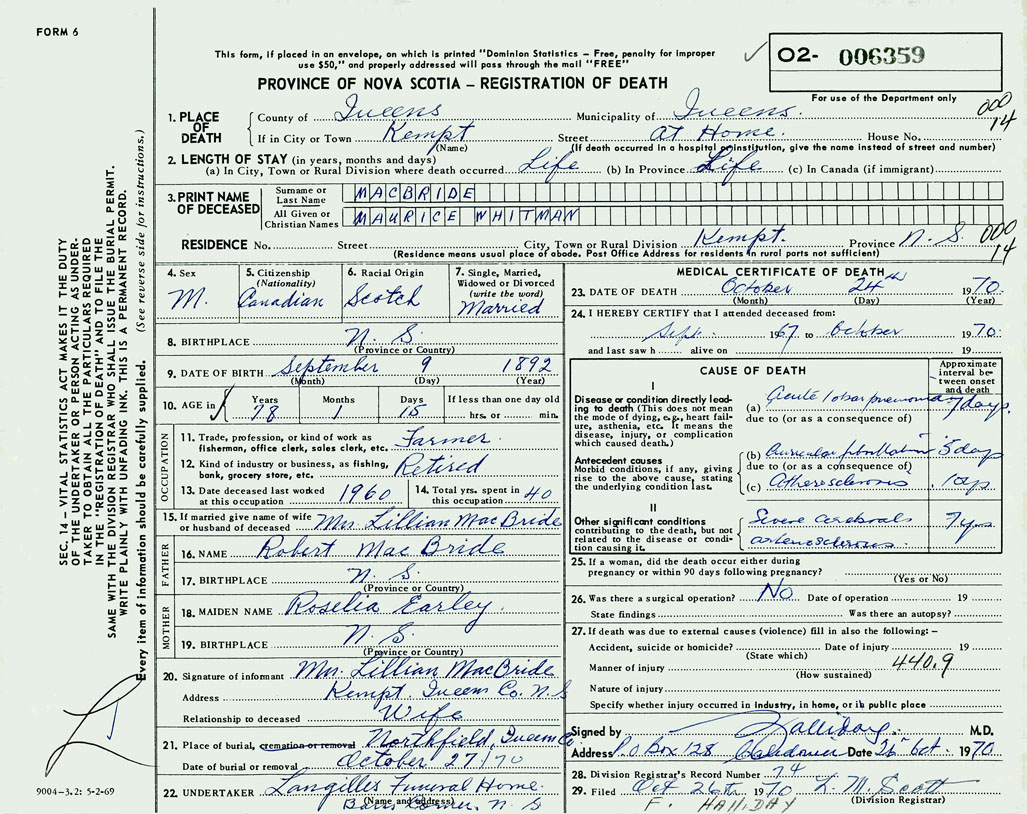 FORM 6
This form, if placed in an envelope, on which is printed "Dominion Statistics – Free, penalty for improper
use $50," and properly addressed will pass through the mail "FREE"
O2- 006359
PROVINCE OF NOVA SCOTIA – REGISTRATION OF DEATH
For use of the Department only
000
14
1. PLACE OF DEATH
County of Queens Municipality of Queens.
If in City or Town Kempt Street At Home. House No.
(Name) (If death occurred in a hospital or institution, give the name instead of street and number)
2. LENGTH OF STAY (in years, months and days)
(a) In City, Town or Rural Division where death occurred Life (b) In Province Life (c) In Canada (if immigrant)
3. PRINT NAME OF DECEASED
Surname or Last Name MACBRIDE
All Given or Christian Names MAURICE WHITMAN
RESIDENCE No. Street City, Town or Rural Division Kempt. Province N. S.
000
14
(Residence means usual place of abode. Post Office Address for residents in rural parts not sufficient)
4. Sex
M.
5. Citizenship
(Nationality)
Canadian
6. Racial Origin
Scotch
7. Single, Married,
Widowed or Divorced
(write the word)
Married
8. BIRTHPLACE N. S.
(Province or Country)
9. DATE OF BIRTH September 9 1892
(Month) (Day) (Year)
10. AGE in
Years Months Days If less than one day old
78 1 15 hrs. or min.
OCCUPATION
11. Trade, profession, or kind of work as
fisherman, office clerk, sales clerk, etc. Farmer.
12. Kind of industry or business, as fishing,
bank, grocery store, etc. Retired
13. Date deceased last worked
at this occupation 1960
14. Total yrs. spent in
this occupation 40
15. If married give name of wife
or husband of deceased Mrs. Lillian MacBride
FATHER
16. NAME Robert MacBride
17. BIRTHPLACE N. S.
(Province or Country)
MOTHER
18. MAIDEN NAME Roselia Earley
19. BIRTHPLACE N. S.
(Province or Country)
20. Signature of informant Mrs. Lillian MacBride
Address Kempt Queens Co. N. S
Relationship to deceased Wife
21. Place of burial, cremation or removal Northfield, Queens Co
Date of burial or removal October 27/70
22. UNDERTAKER Langilles Funeral Home.
(Name and address)
N. S
MEDICAL CERTIFICATE OF DEATH
23. DATE OF DEATH October 24th 1970.
(Month) (Day) (Year)
24. I HEREBY CERTIFY that I attended deceased from:
Sept. 1967 to October 1970.
and last saw h alive on 19
CAUSE OF DEATH
Approximate
interval be-
tween onset
and death
I
Disease or condition directly lead-
ing to death (This does not mean
the mode of dying, e.g., heart fail-
ure, asthenia, etc. It means the
disease, injury, or complication
which caused death.)
(a) Acute lobar pneumonia 7 days.
due to (or as a consequence of)
Antecedent causes
Morbid conditions, if any, giving
rise to the above cause, stating
the underlying condition last.
(b) Auricular fibrillation 5 days
due to (or as a consequence of)
(c) Atherosclerosis 10 yrs.
II
Other significant conditions
contributing to the death, but not
related to the disease or condi-
tion causing it.
Severe cerebral 7 yrs.
arteriosclerosis.
25. If a woman, did the death occur either during
pregnancy or within 90 days following pregnancy?
(Yes or No)
26. Was there a surgical operation? No Date of operation 19
State findings Was there an autopsy?
27. If death was due to external causes (violence) fill in also the following: –
Accident, suicide or homicide? Date of injury 19
(State which)
Manner of injury 440.9
(How sustained)
Nature of injury
Specify whether injury occurred in industry, in home, or in public place
Signed by Halliday M.D.
Address P.O Box 128 Caledonia Date 26th Oct. 1970
28. Division Registrar's Record Number 74
29. Filed Oct 26th 1970 L. M. Scott
(Division Registrar)
F. HALLIDAY
SEC. 14 – VITAL STATISTICS ACT MAKES IT THE DUTY
OF THE UNDERTAKER OR PERSON ACTING AS UNDER-
TAKER TO OBTAIN ALL THE PARTICULARS REQUIRED
IN THE "REGISTRATION OF DEATH" AND TO FILE THE
SAME WITH THE DIVISION REGISTRAR WHO SHALL ISSUE THE BURIAL PERMIT.
WRITE PLAINLY WITH UNFADING INK. THIS IS A PERMANENT RECORD.
Every item of information should be carefully supplied. (See reverse side for instructions.)
9004–3.2: 5-2-69